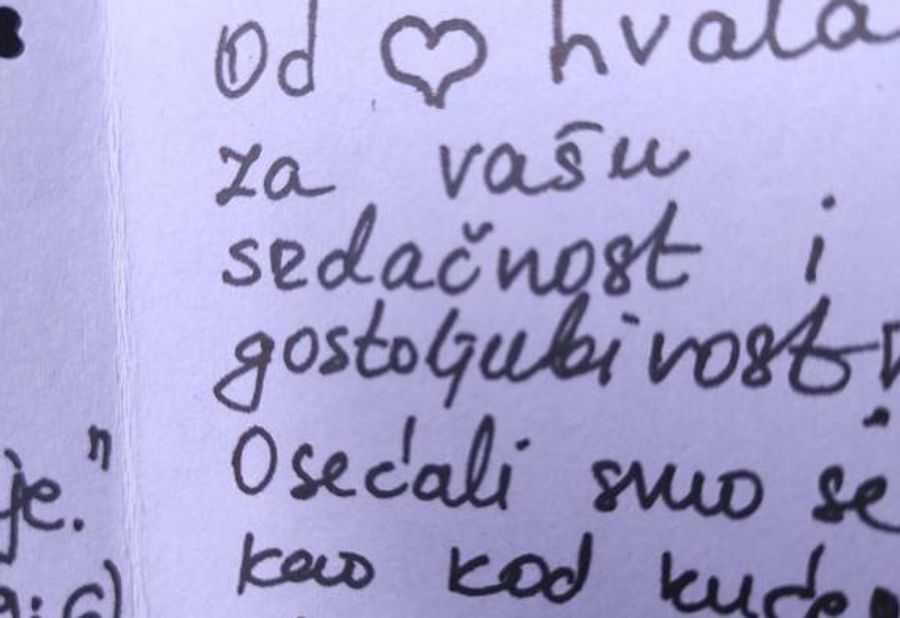 Od ♡ hvala
za vašu
sedačnost i
gostoljubivost
Osećali smo se
kao kod kuće
je."